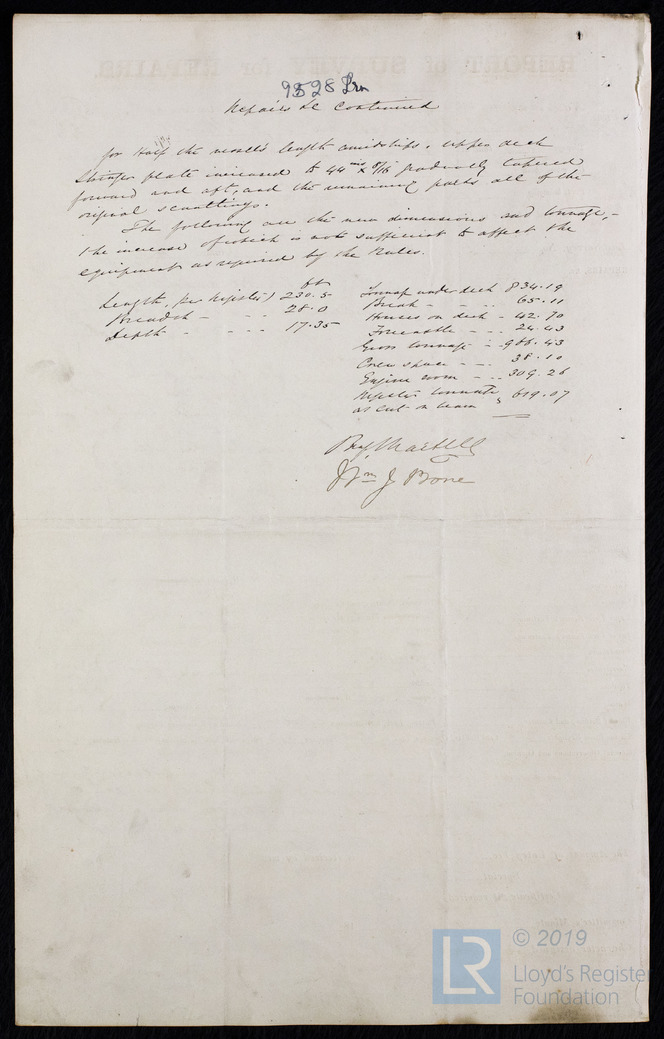 REPORT of SURVEY for REPAIRS.
9528 Irn
Repairs &c Continued
for Half the vessel's length amidships. upper deck
Stringer plate increased to 44 ins x 8/16 gradually tapered
forward and aft, and the remaining parts all of the
original scantlings.
The following are the new dimensions and tonnage, -
the increase of which is not sufficient to affect the
equipment as required by the Rules.
ft
Length, (per Register) 230.5
Breadth - - - 28.0
Depth - - - - 17.35
Tonnage under deck 834.19
Break - - - 65.11
Houses on deck - 42.70
Forecastle - - 24.43
Gross tonnage - - 966.43
Crew space - - - 38.10
Engine room - - - 309.26
Register tonnage
as cut on beam } 619.07
Benj Martell
Wm J Bone
© 2019
LR
Lloyd's Register
Foundation